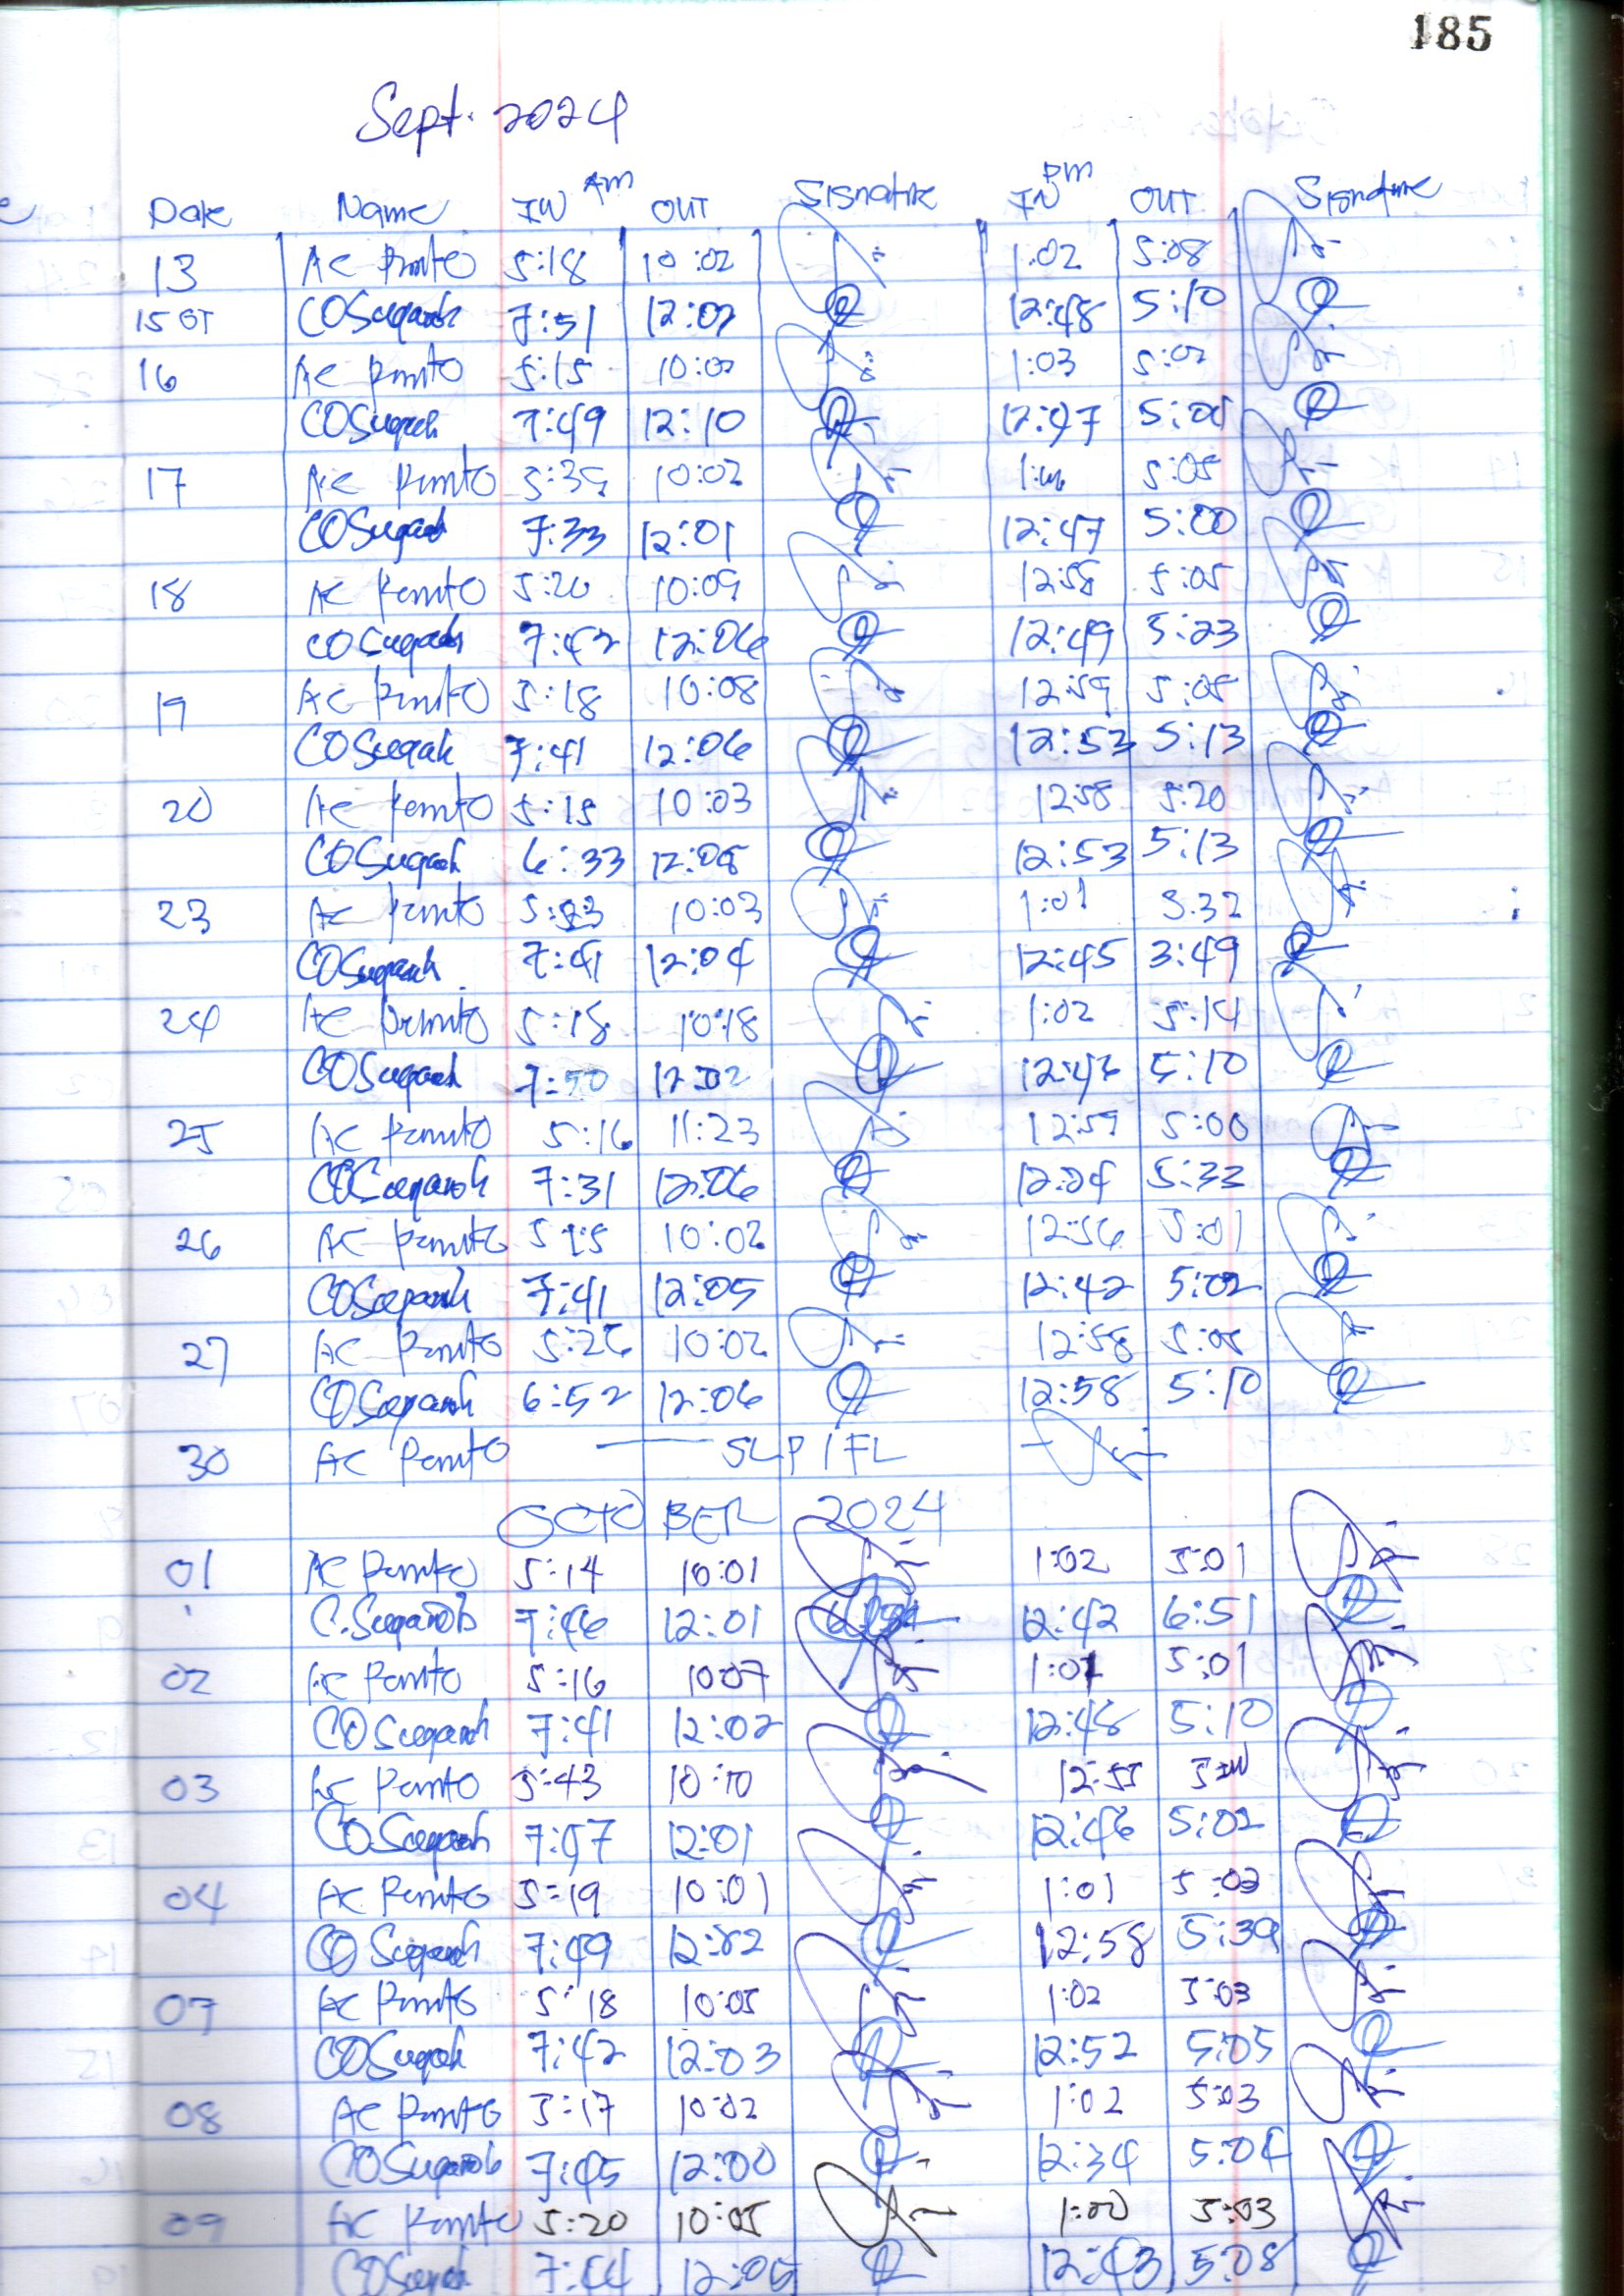 185
Sept. 2024
Date Name IN AM OUT Signature IN PM OUT Signature
13 AC Pomto 5:18 10:02 1:02 5:08
15 OT COSugarol 7:51 12:02 12:48 5:10
16 AC Pomto 5:15 10:02 1:03 5:02
COSugarol 7:49 12:10 12:47
17 AC Pomto 5:35 10:02 5:05
COSugarol 7:33 12:01 12:47 5:00
18 AC Pomto 5:20 10:09 12:58 5:05
COSugarol 7:42 12:06 12:49 5:23
19 AC Pomto 5:18 10:08 12:59 5:05
COSugarol 7:41 12:06 12:53 5:13
20 AC Pomto 5:15 10:03 12:58 5:20
COSugarol 6:33 12:05 12:53 5:13
23 AC Pomto 10:03 1:01 5:32
COSugarol 7:41 12:04 12:45 3:49
24 AC Pomto 5:18 10:18 1:02 5:14
COSugarol 7:50 12:02 5:10
25 AC Pomto 5:16 11:23 12:59 5:00
COSugarol 7:31 12:06 5:33
26 AC Pomto 5:15 10:02 12:56 5:01
COSugarol 7:41 12:05 12:42 5:02
27 AC Pomto 5:26 10:02 12:58 5:05
COSugarol 6:52 12:06 12:58 5:10
30 AC Pomto SLP / FL
OCTOBER 2024
01 AC Pomto 5:14 10:01 1:02 5:01
C.Sugarol 7:46 12:01 12:42 6:51
02 AC Pomto 5:16 10:07 1:01 5:01
COSugarol 7:41 12:02 12:48 5:10
03 AC Pomto 5:43 10:10 12:55
COSugarol 7:47 12:01 12:46 5:02
04 AC Pomto 5:19 10:01 1:01 5:03
COSugarol 7:49 12:02 12:58 5:39
07 AC Pomto 5:18 10:05 1:02 5:03
COSugarol 7:42 12:03 12:52 5:05
08 AC Pomto 5:17 10:02 1:02 5:03
COSugarol 7:45 12:00 12:34 5:04
09 AC Pomto 5:20 10:05 1:00 5:03
COSugarol 7:44 12:05 12:43 5:08